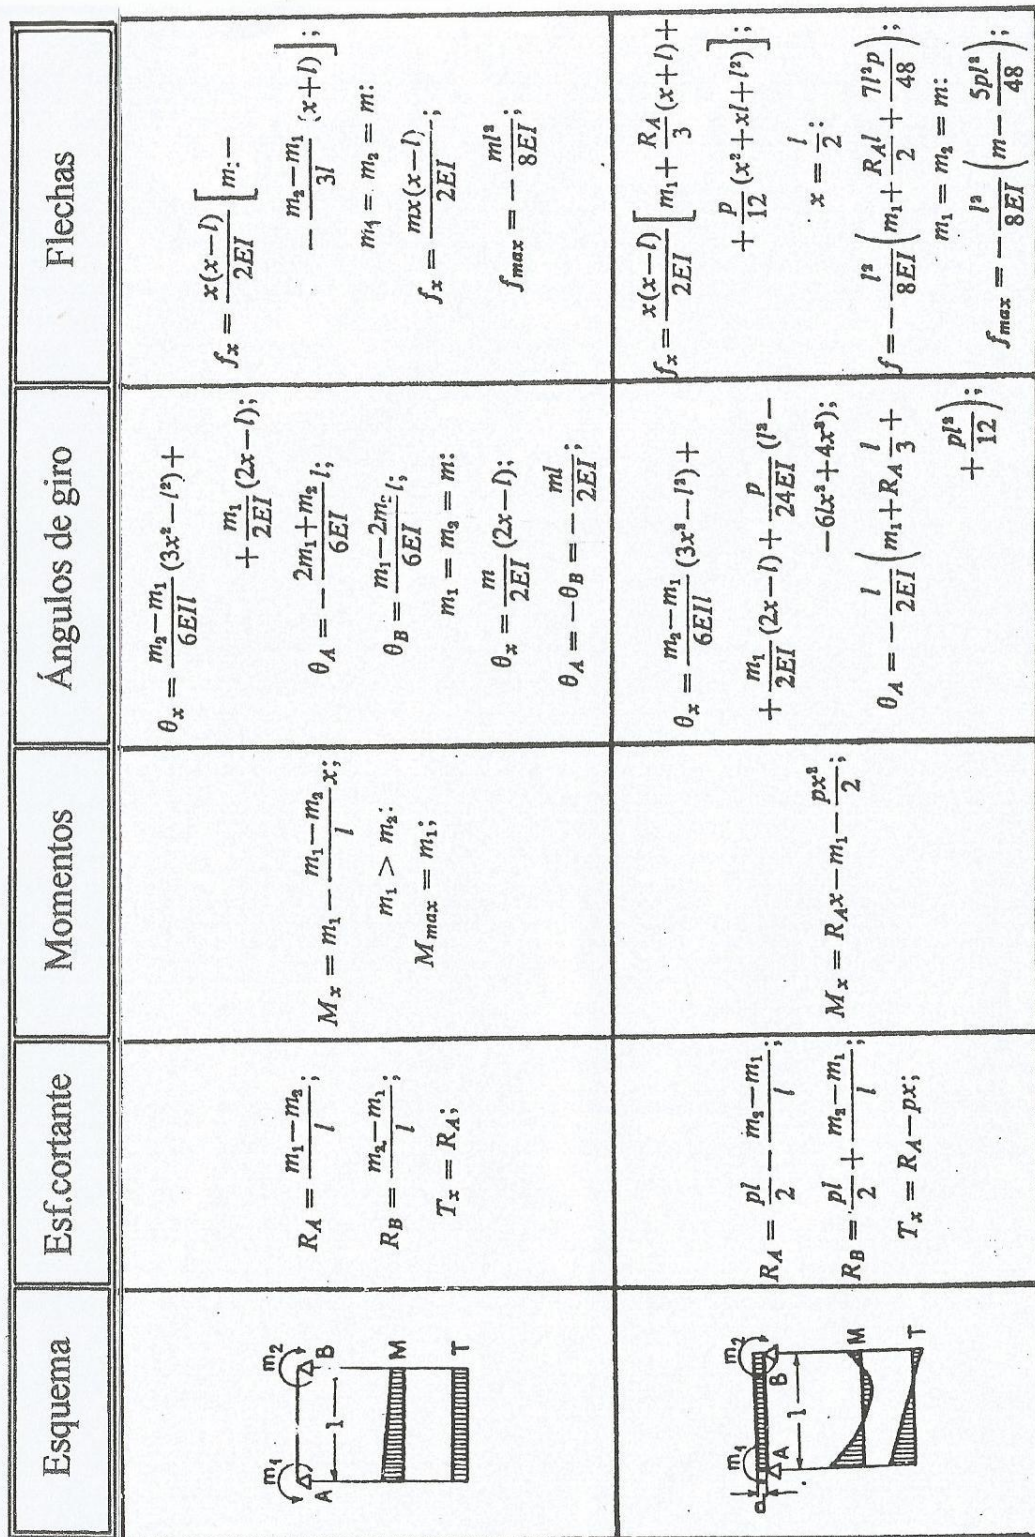 Esquema
Esf.cortante
Momentos
Ángulos de giro
Flechas
m₁
m₂
A
B
l
M
T
R_A = (m₁ − m₂)/l;
R_B = (m₂ − m₁)/l;
T_x = R_A;
M_x = m₁ − (m₁ − m₂)/l x;
m₁ > m₂:
M_max = m₁;
θ_x = (m₂ − m₁)/(6EIl) (3x² − l²) +
+ m₁/(2EI) (2x − l);
θ_A = − (2m₁ + m₂)/(6EI) l;
θ_B = (m₁ − 2m₂)/(6EI) l;
m₁ = m₂ = m:
θ_x = m/(2EI) (2x − l);
θ_A = −θ_B = − ml/(2EI);
f_x = x(x − l)/(2EI) [m: −
− (m₂ − m₁)/(3l) (x + l)];
m₁ = m₂ = m:
f_x = mx(x − l)/(2EI);
f_max = − ml²/(8EI);
m₁
m₂
A
B
l
M
T
R_A = pl/2 − (m₂ − m₁)/l;
R_B = pl/2 + (m₂ − m₁)/l;
T_x = R_A − px;
M_x = R_A x − m₁ − px²/2;
θ_x = (m₂ − m₁)/(6EIl) (3x² − l²) +
+ m₁/(2EI) (2x − l) + p/(24EI) (l³ −
− 6lx² + 4x³);
θ_A = − l/(2EI) (m₁ + R_A l/3 +
+ pl²/12);
f_x = x(x − l)/(2EI) [m₁ + R_A/3 (x + l) +
+ p/12 (x² + xl + l²)];
x = l/2:
f = − l²/(8EI) (m₁ + R_A l/2 + 7l²p/48);
m₁ = m₂ = m:
f_max = − l²/(8EI) (m − 5pl²/48);